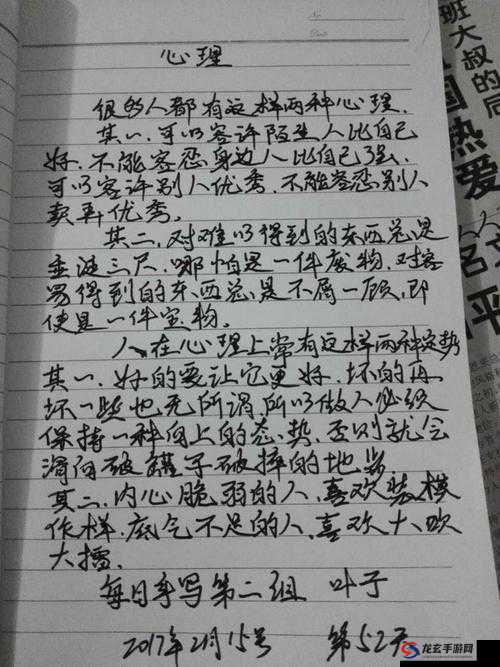 心理
很多人都有这样两种心理.
其一.可以容许陌生人比自己
好.不能容忍身边人比自己强.
可以容许别人优秀.不能容忍别人
更优秀。
其二.对难以得到的东西总是
垂涎三尺.哪怕是一件废物.对容
易得到的东西总是不屑一顾,即
使是一件宝物。
人在心理上常有这样两种姿势
其一.好的要让它更好.坏的再
坏一些也无所谓,所以做人必须
保持一种向上的态势,否则就会
滑向破罐子破摔的地步
其二.内心脆弱的人,喜欢装模
作样.底气不足的人,喜欢大吹
大擂.
每日手写第二组 叶子
2017年2月15号 第52天
班大叔的后
国热爱
名
平
龙玄手游网